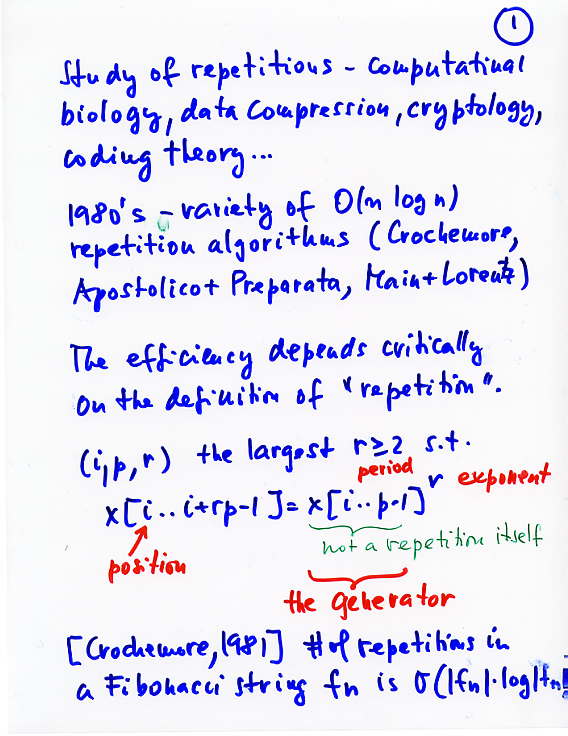 1
Study of repetitions - computatinal
biology, data compression, cryptology,
coding theory...
1980's - variety of O(n log n)
repetition algorithms (Crochemore,
Apostolico+ Preparata, Main+Lorentz)
The efficiency depends critically
on the definition of "repetition".
(i,p,r) the largest r≥2 s.t.
period
x[i..i+rp-1]=x[i..p-1]^r exponent
not a repetition itself
position
the generator
[Crochemore,1981] # of repetitions in
a Fibonacci string fn is O(|fn|·log|fn|